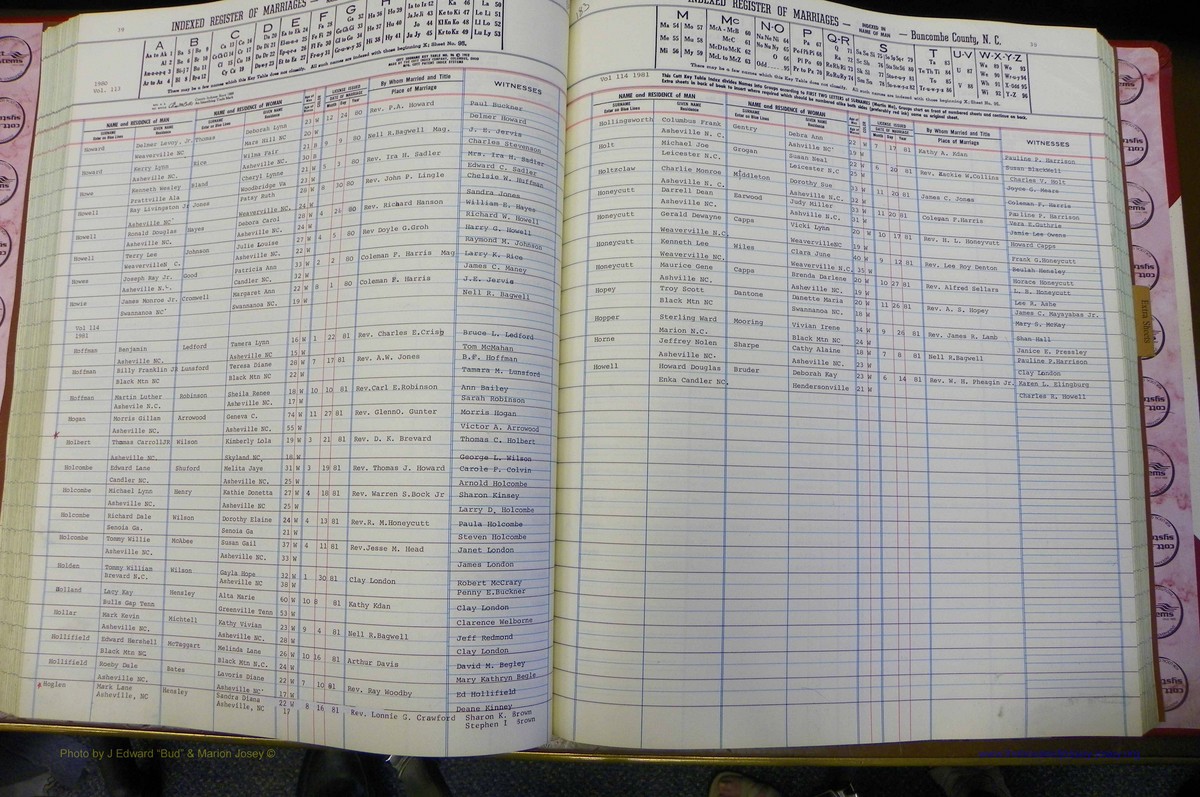 INDEXED REGISTER OF MARRIAGES —
38
1980
Vol. 113
NAME and RESIDENCE OF MAN
NAME and RESIDENCE OF WOMAN
By Whom Married and Title
WITNESSES
Howard Delmer Levoy, Jr. Thomas Deborah Lynn 23 W 12 24 80 Rev. P.A. Howard Paul Buckner
Weaverville NC Mars Hill NC 20 W Delmer Howard
Howard Kerry Lynn Rice Wilma Fair 21 8 9 9 80 Nell R.Bagwell Mag. J. E. Jervis
Asheville NC. Asheville NC. 30 B Charles Stevenson
Howe Kenneth Wesley Bland Cheryl Lynne 21 W 5 3 80 Rev. Ira H. Sadler Mrs. Ira H. Sadler
Prattville Ala Woodbridge Va Edward C. Sadler
Howell Ray Livingston Jr Jones Patsy Ruth 28 W 8 30 80 Rev. John P. Lingle Chelsie W. Huffman
Asheville NC' Weaverville NC. 24 W Sandra Jones
Howell Ronald Douglas Hayes Debora Carol 28 W 4 25 80 Rev. Richard Hanson William H. Hayes
Asheville NC. Asheville NC' 24 W Richard W. Howell
Howell Terry Lee Johnson Julia Louise 27 W 4 5 80 Rev Doyle G.Groh Harry G. Howell
Weaverville N C. Asheville NC. 22 W Raymond M. Johnson
Howes Joseph Ray Jr. Good Patricia Ann 33 W 2 2 80 Coleman F. Harris Mag Larry K. Rice
Asheville N.C. Candler NC. 32 W James C. Maney
Howie James Monroe Jr. Cromwell Margaret Ann 22 W 8 1 80 Coleman F. Harris J.E. Jervis
Swannanoa NC' Swannanoa NC. 19 W Nell R. Bagwell
Vol 114
1981
Hoffman Benjamin Ledford Tamera Lynn 16 W 1 22 81 Rev. Charles E.Crisp Bruce L. Ledford
Asheville NC. Asheville NC 15 W Tom McMahan
Hoffman Billy Franklin JR Lunsford Teresa Diane 28 W 7 17 81 Rev. A.W. Jones B.F. Hoffman
Black Mtn NC Black Mtn NC 22 W Tamara M. Lunsford
Hoffman Martin Luther Robinson Sheila Renee 18 W 10 10 81 Rev.Carl E.Robinson Ann Bailey
Ashevile N.C. Asheville NC. 17 W Sarah Robinson
Hogan Morris Gillan Arrowood Geneva C. 74 W 11 27 81 Rev. GlennO. Gunter Morris Hogan
Asheville NC. Asheville NC. 55 W Victor A. Arrowood
Holbert Thomas CarrollJR Wilson Kimberly Lola 19 W 3 21 81 Rev. D. K. Brevard Thomas C. Holbert
Asheville NC. Skyland NC, 18 W George L. Wilson
Holcombe Edward Lane Shuford Melita Jaye 31 W 3 19 81 Rev. Thomas J. Howard Carole P. Colvin
Candler NC. Asheville NC. 25 W Arnold Holcombe
Holcombe Michael Lynn Henry Kathie Donetta 27 W 4 18 81 Rev. Warren S.Bock Jr Sharon Kinsey
Asheville NC. Asheville NC 25 W Larry D. Holcombe
Holcombe Richard Dale Wilson Dorothy Elaine 24 W 4 13 81 Rev.R. M.Honeycutt Paula Holcombe
Senoia Ga. Senoia Ga 21 W Steven Holcombe
Holcombe Tommy Willie McAbee Susan Gail 37 W 4 11 81 Rev.Jesse M. Head Janet London
Asheville NC. Asheville NC. 33 W James London
Holden Tommy William Wilson Gayla Hope 32 W 1 30 81 Clay London Robert McCrary
Brevard N.C. Asheville NC 38 W Penny E.Buckner
Holland Lacy Kay Hensley Alta Marie 60 W 10 8 81 Kathy Kdan Clay London
Bulls Gap Tenn Greenville Tenn 53 W Clarence Welborne
Hollar Mark Kevin Michtell Kathy Vivian 23 W 9 4 81 Nell R.Bagwell Jeff Redmond
Asheville NC. Asheville NC. 28 W Clay London
Hollifield Edward Hershell McTaggart Melinda Lane 26 W 10 16 81 Arthur Davis David M. Begley
Black Mtn NC Black Mtn N.C. 24 W Mary Kathryn Begle
Hollifield Roeby Dale Bates Lavoris Diane 22 W 7 10 81 Rev. Ray Woodby Ed Hollifield
Asheville NC. Asheville NC' 17 W Deane Kinney
Hoglen Mark Lane Hensley Sandra Diana 22 W 8 16 81 Rev. Lonnie G. Crawford Sharon K. Brown
Asheville, NC Asheville, NC 17 Stephen I Brown
INDEXED REGISTER OF MARRIAGES — Buncombe County, N. C.
39
Vol 114 1981
NAME and RESIDENCE OF MAN
NAME and RESIDENCE OF WOMAN
By Whom Married and Title
WITNESSES
Hollingsworth Columbus Frank Gentry Debra Ann 22 W 7 17 81 Kathy A. Kdan Pauline P. Harrison
Asheville N. C. Ashville NC' 19 W Susan Blackwell
Holt Michael Joe Grogan Susan Neal 22 W 6 20 81 Rev. Mackie W,Collins Charles V. Holt
Leicester N.C. Leicester N.C 25 W Joyce G. Meare
Holtzclaw Charlie Monroe Middleton Dorothy Sue 33 W 11 20 81 James C. Jones Coleman F. Harris
Asheville N. C. Asheville NC. 32 W Pauline P. Harrison
Honeycutt Darrell Dean Earwood Judy Miller 33 W 11 20 81 Coleman F.Harris Vera E.Guthrie
Asheville NC. Ashville N.C. 31 W Jamie Lee Owens
Honeycutt Gerald Dewayne Capps Vicki Lynn 20 W 10 17 81 Rev. H. L. Honeycutt Howard Capps
Weaverville N.C. WeavervilleNC 19 W Frank G.Honeycutt
Honeycutt Kenneth Lee Wiles Clara June 40 W 9 12 81 Rev. Lee Roy Denton Beulah Hensley
Weaverville NC. Weaverville N.C. 35 W Horace Honeycutt
Honeycutt Maurice Gene Capps Brenda Darlene 20 W 10 27 81 Rev. Alfred Sellars L. R. Honeycutt
Ashville NC. Asheville NC. 19 W Lee R. Ashe
Hopey Troy Scott Dantone Danette Maria 20 W 11 26 81 Rev. A. S. Hopey James C. Mayayabas Jr.
Black Mtn NC Swannanoa NC. 18 W Mary S. McKay
Hopper Sterling Ward Mooring Vivian Irene 34 W 9 26 81 Rev. James R. Lamb Shan Hall
Marion N.C. Black Mtn NC 24 W Janice E. Pressley
Horne Jeffrey Nolen Sharpe Cathy Alaine 18 W 7 8 81 Nell R.Bagwell Pauline P.Harrison
Asheville NC. Asheville NC. 23 W Clay London
Howell Howard Douglas Bruder Deborah Kay 23 W 6 14 81 Rev. W. H. Pheagin Jr. Karen L. Elingburg
Enka Candler NC. Hendersonville 21 W Charles R. Howell
Extra Sheets
Photo by J Edward "Bud" & Marion Josey ©